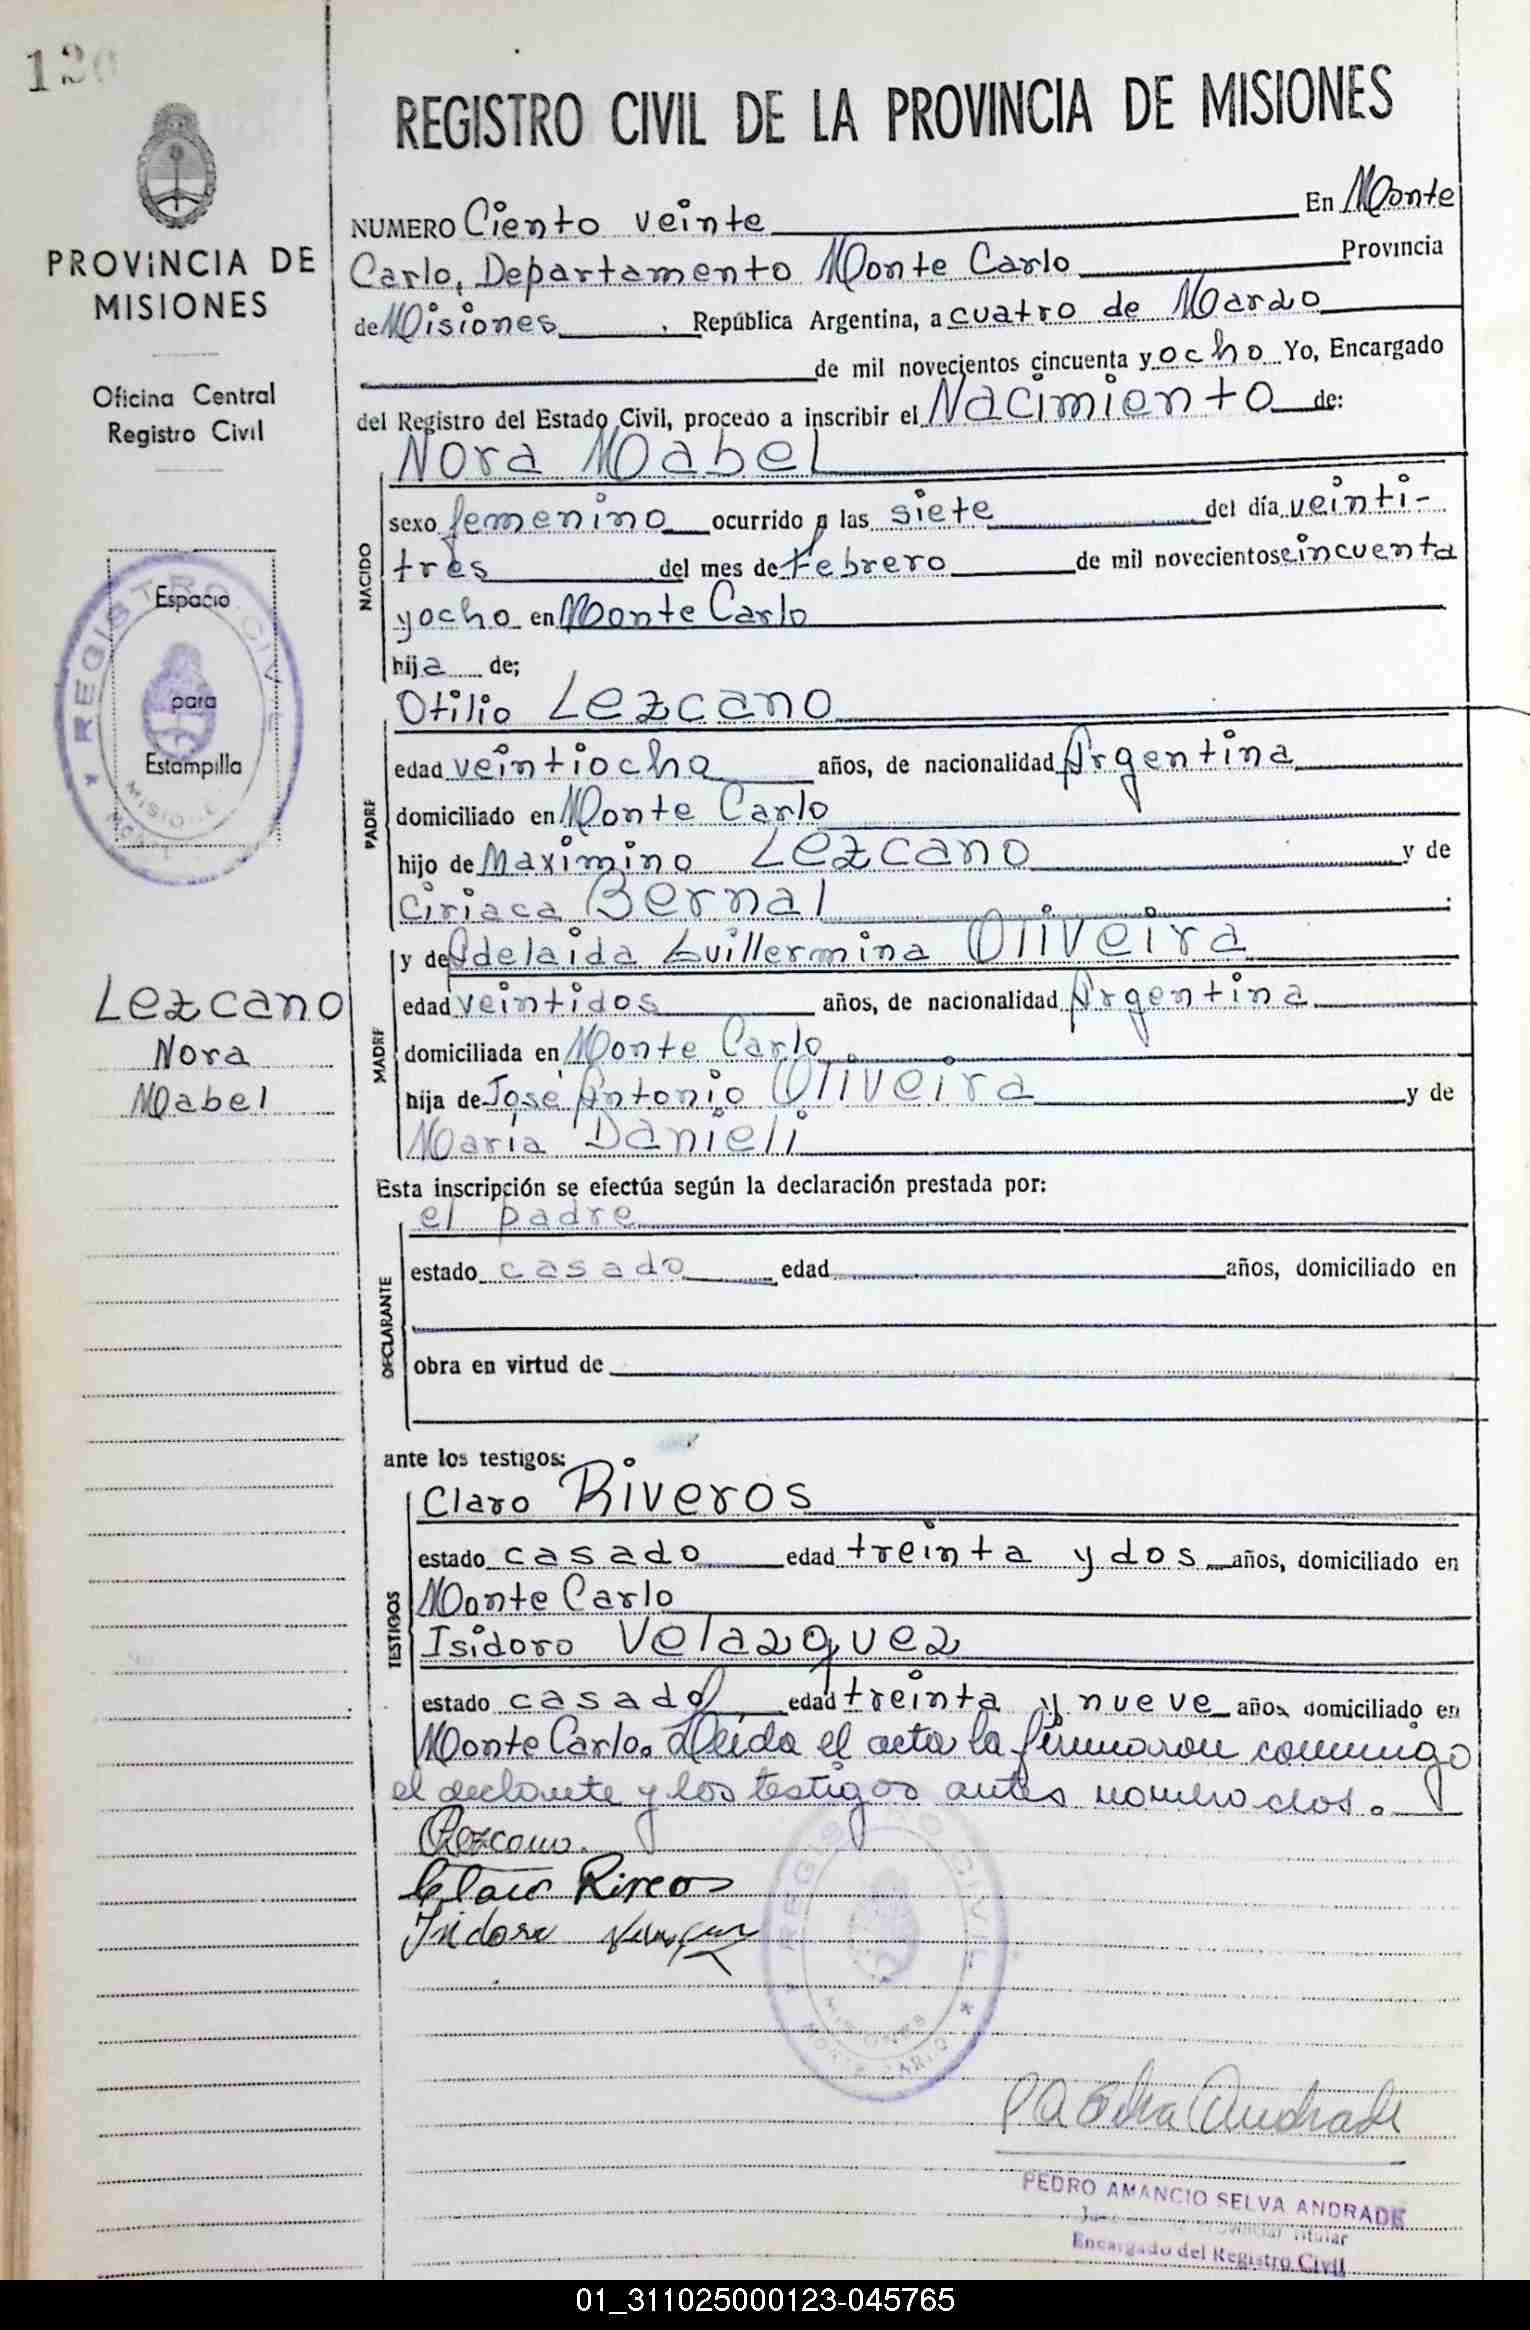 120
REGISTRO CIVIL DE LA PROVINCIA DE MISIONES
PROVINCIA DE
MISIONES
Oficina Central
Registro Civil
Espacio
para
Estampilla
REGISTRO CIVIL
MISIONES
Lezcano
Nora
Mabel
NUMERO Ciento veinte En Monte
Carlo, Departamento Monte Carlo Provincia
de Misiones, República Argentina, a cuatro de Marzo
de mil novecientos cincuenta y ocho Yo, Encargado
del Registro del Estado Civil, procedo a inscribir el Nacimiento de:
NACIDO
Nora Mabel
sexo femenino ocurrido a las siete del día veinti-
trés del mes de Febrero de mil novecientos cincuenta
y ocho en Monte Carlo
hija de;
PADRE
Otilio Lezcano
edad veintiocho años, de nacionalidad Argentina
domiciliado en Monte Carlo
hijo de Maximino Lezcano y de
Ciriaca Bernal
MADRE
y de Adelaida Guillermina Oliveira
edad veintidos años, de nacionalidad Argentina
domiciliada en Monte Carlo
hija de José Antonio Oliveira y de
María Danieli
Esta inscripción se efectúa según la declaración prestada por:
DECLARANTE
el padre
estado casado edad años, domiciliado en
obra en virtud de
ante los testigos:
TESTIGOS
Claro Riveros
estado casado edad treinta y dos años, domiciliado en
Monte Carlo
Isidoro Velazquez
estado casado edad treinta y nueve años, domiciliado en
Monte Carlo. Leída el acta la firmaron conmigo
el declante y los testigos antes nombrados.
OLezcano.
Claro Riveros
Isidoro Velazquez
REGISTRO CIVIL
MISIONES
MONTE CARLO
P A Selva Andrade
PEDRO AMANCIO SELVA ANDRADE
Titular
Encargado del Registro Civil
01_311025000123-045765